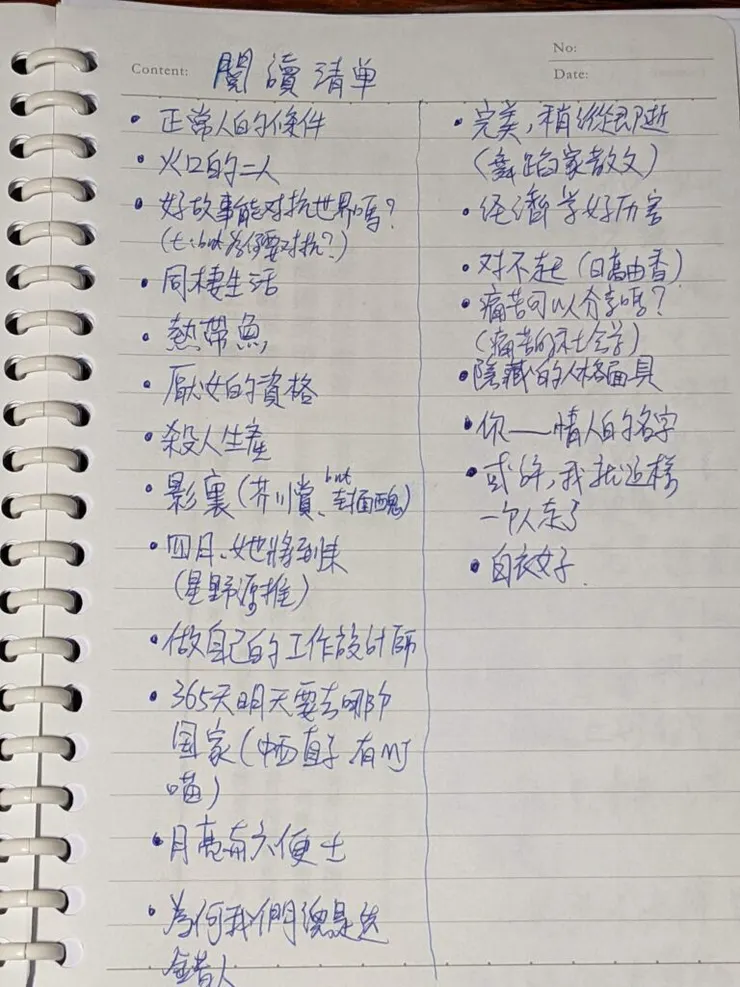 Content: 閱讀清单
No:
Date:
• 正常人的條件
• 火口的二人
• 好故事能对抗世界嗎?
(t: but 为何要对抗?)
• 同棲生活
• 熱帶魚
• 厭女的資格
• 殺人生産
• 影裏(芥川賞、but 封面醜)
• 四月、她將到來
(星野源推)
• 做自己的工作設計師
• 365天明天要去哪个
国家(中西直子 有MJ
喵)
• 月亮与六便士
• 為何我們總是选
錯人
• 完美,稍縱即逝
(舞蹈家散文)
• 经濟学好厉害
• 对不起(日高由香)
• 痛苦可以分享嗎?
(痛苦的社会学)
• 隱藏的人格面具
• 你——情人的名字
• 或许,我就这样
一个人走了
• 白衣女子